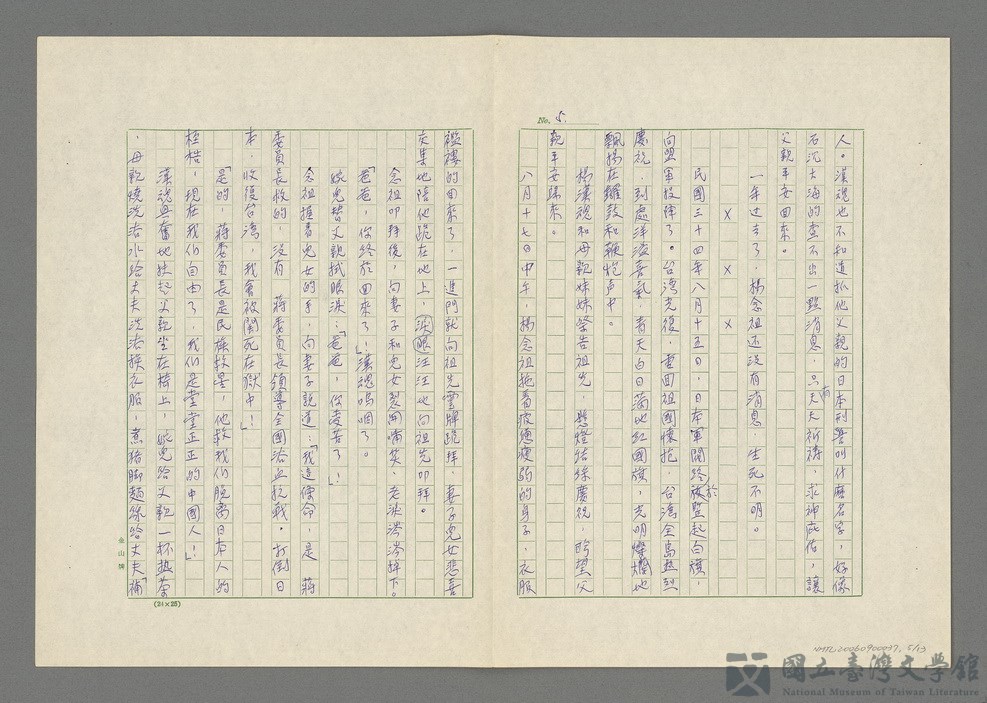 No. 5.
人。漢魂也不知道抓他父親的日本刑警叫什麼名字，好像
石沉大海的查不出一點消息，只有天天祈禱，求神庇佑，讓
父親平安回來。
一年过去了，楊念祖还没有消息，生死不明。
X X X
民國三十四年八月十五日，日本軍閥終於豎起白旗，
向盟軍投降了。台湾光復，重回祖國懷抱，台湾全島热烈
慶祝，到處洋溢喜氣，青天白日满地红國旗，光明燦爛地
飄揚在鑼鼓和鞭炮声中。
楊漢魂和母親妹妹祭告祖先，懸燈结綵慶祝，盼望父
親平安歸來。
八月十七日中午，楊念祖拖着疲憊瘦弱的身子，衣服
襤褸的回來了，一進門就向祖先靈牌跪拜，妻子兒女悲喜
交集地陪他跪在地上，淚眼汪汪地向祖先叩拜。
念祖叩拜後，向妻子和兒女裂開嘴笑，老淚涔涔掉下。
「爸爸，你終於回來了！」漢魂嗚咽了。
婉兒替父親拭眼淚：「爸爸，你受苦了！」
念祖握着兒女的手，向妻子說道：「我這條命，是 蔣
委員長救的，没有 蔣委員長領導全國浴血抗戰，打倒日
本，收復台湾，我會被關死在獄中！」
「是的，蔣委員長是民族救星，他救我们脱离日本人的
桎梏，現在我们自由了，我们是堂堂正正的中國人！」
漢魂興奮地扶起父親坐在椅上，婉兒给父親一杯热茶
，母親燒洗澡水给丈夫洗澡换衣服，煮猪脚麵線给丈夫「補
金山牌
(24×25)
NMTL20060900037, 5/19
國立臺灣文學館
National Museum of Taiwan Literature